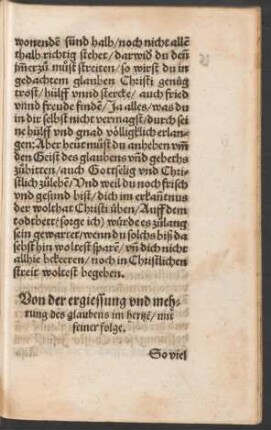 wonendē sünd halb / noch nicht allē
thalb richtig stehet / darwid du deñ
im̃erzů můst streiten / so wirst du in
gedachtem glauben Christi genůg
trost / hülff vnnd stercke / auch fried
vnnd freude finden / Ja alles / was du
in dir selbst nicht vermagst / durch sei
ne hülff vnd gnad völligklich erlan-
gen: Aber heut můst du anheben vm̃
den Geist des glaubens vñ gebeths
zůbitten / auch Gottselig vnd Chri-
stlich zůlebē / Vnd weil du noch frisch
vnd gesund bist / dich im erkañtnus
der wolthat Christi üben / Auff dem
todtbett (sorge ich) würde es zůlang
sein gewartet / wenn du solchs biß da
selbst hin woltest sparē / vñ dich nicht
allhie bekeeren / noch in Christlichen
streit woltest begeben.
Von der ergiessung vnd meh-
rung des glaubens im hertzē / mit
seiner folge.
So viel